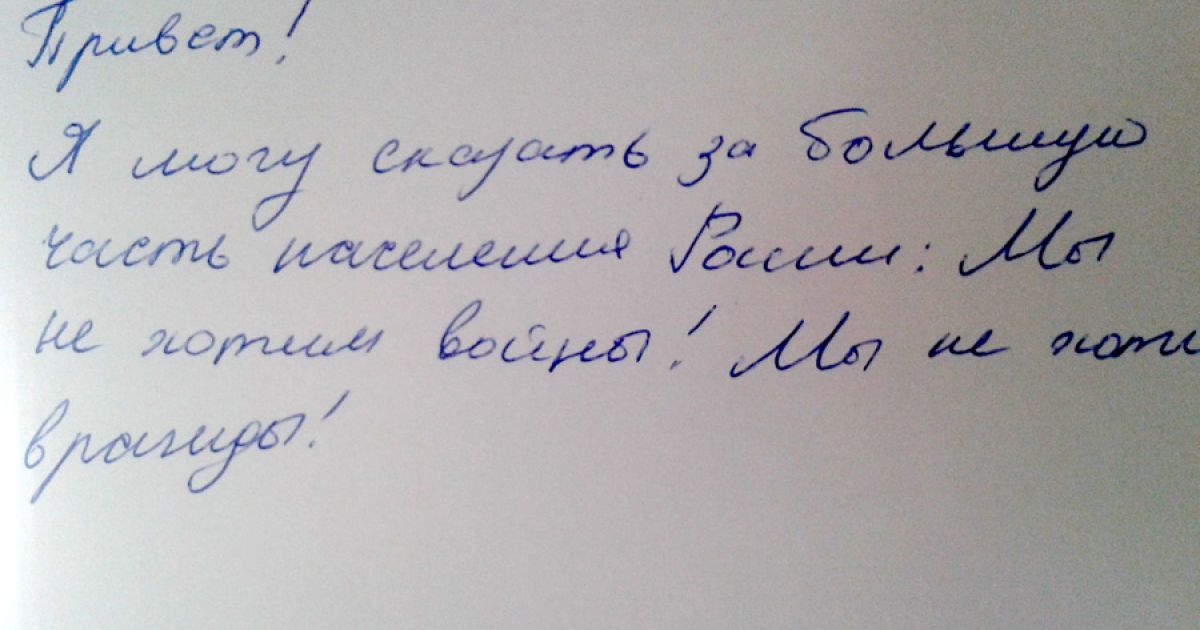 Привет!
Я могу сказать за большую
часть населения России: Мы
не хотим войны! Мы не хоти
вражды!